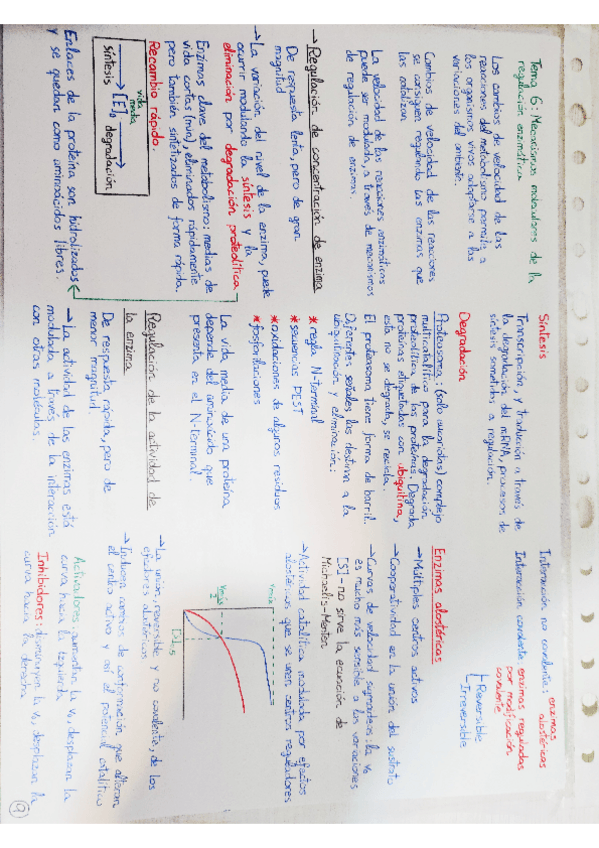 Tema 6: Mecanismos moleculares de la
regulación enzimática
Los cambios de velocidad de las
reacciones del metabolismo permite a
los organismos vivos adaptarse a las
variaciones del ambiente.
Cambios de velocidad de las reacciones
se consiguen regulando las enzimas que
las catalizan.
La velocidad de las reacciones enzimáticas
puede ser modulada, a través de mecanismos
de regulación de enzimas.
→ Regulación de concentración de enzima
De respuesta lenta, pero de gran
magnitud
→ La variación del nivel de la enzima, puede
ocurrir modulando la síntesis y la
eliminación por degradación proteolítica
Enzimas clave del metabolismo: medias de
vida cortas (min), eliminados rápidamente
pero también sintetizados de forma rápida.
Recambio rápido.
vida
media
síntesis → [E]o → degradación
Enlaces de la proteína son hidrolizados
y se quedan como aminoácidos libres.
Síntesis
Transcripción y traducción a través de
la degradación del mRNA, procesos de
síntesis sometidos a regulación.
Degradación
Proteasoma: (solo eucariotas) complejo
multicatalítico para la degradación
proteolítica de las proteínas. Degrada
proteínas etiquetadas con ubiquitina,
esta no se degrada, se recicla.
El proteasoma tiene forma de barril.
Diferentes señales las destinan a la
ubiquitinación y eliminación:
* regla N-terminal
* secuencias PEST
* oxidaciones de algunos residuos
* fosforilaciones
La vida media de una proteína
depende del aminoácido que
presenta en el N-terminal.
Regulación de la actividad de
la enzima
De respuesta rápida, pero de
menor magnitud.
→ La actividad de las enzimas está
modulada a través de la interacción
con otras moléculas.
Interacción no covalente: enzimas
alostéricas
Interacción covalente enzimas reguladas
por modificación
covalente
Reversible
Irreversible
Enzimas alostéricas
→ Múltiples centros activos
→ Cooperatividad en la unión del sustrato
→ Curvas de velocidad sigmoideas: la vo
es mucho más sensible a las variaciones
[S] - no sirve la ecuación de
Michaelis-Menten
→ Actividad catalítica modulada por efectos
alostéricos que se unen centros reguladores
Vmáx
Vmáx
2
[S]0,5
→ La unión, reversible y no covalente, de los
efectores alostéricos
→ Inducen cambios de conformación que alteran
el centro activo y así el potencial catalítico
Activadores: aumentan la vo, desplazan la
curva hacia la izquierda
Inhibidores: disminuyen la vo, desplazan la
curva hacia la derecha
9